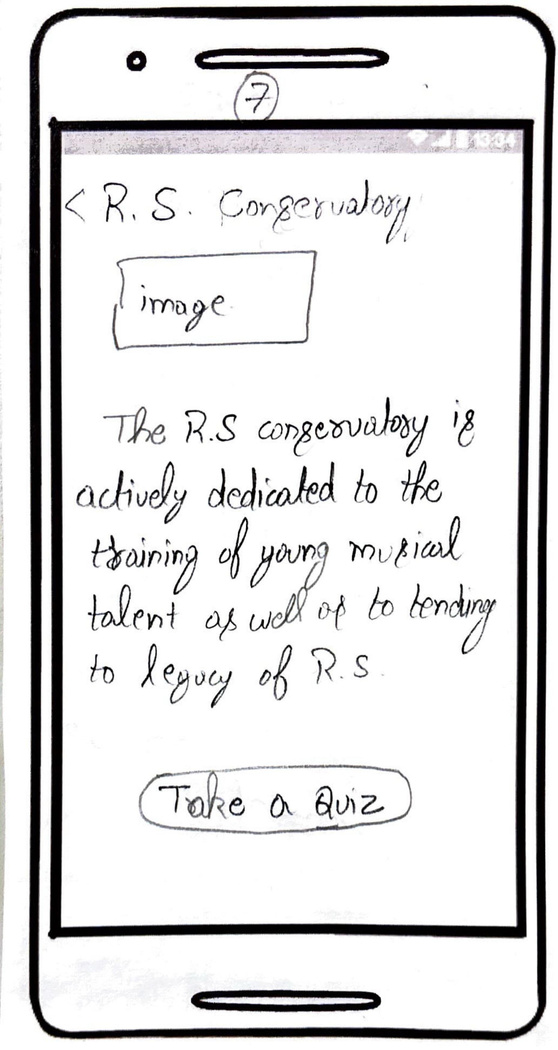 7
13:34
< R. S. Conservatory
image
The R.S conservatory is
actively dedicated to the
training of young musical
talent as well as to tending
to legacy of R.S.
Take a Quiz